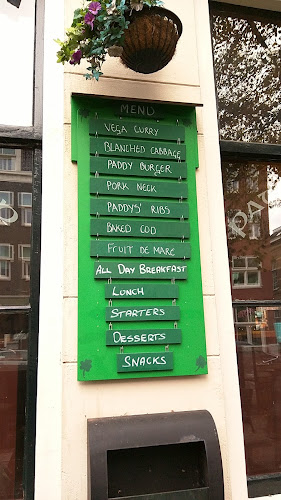 MENU
VEGA CURRY
BLANCHED CABBAGE
PADDY BURGER
PORK NECK
PADDYS' RIBS
BAKED COD
FRUIT DE MARE
ALL DAY BREAKFAST
LUNCH
STARTERS
DESSERTS
SNACKS